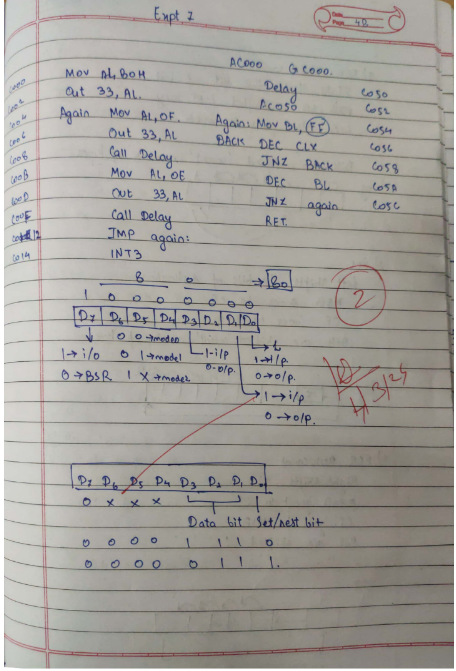 Expt 2
Date
Page 40
AC000 GC000.
C000 MOV AL, 80H
C002 Out 33, AL.
C004 Again MOV AL, OF.
C006 Out 33, AL
C008 Call Delay
C00B MOV AL, OE
C00D Out 33, AL
C00F Call Delay
C012 JMP again:
C014 INT3
Delay C050
AC050 C052
Again: MOV BL, FF C054
BACK DEC CLX C056
JNZ BACK C058
DEC BL C05A
JNZ again C05C
RET.
8 0 → 80
1 0 0 0 0 0 0 0
D7 D6 D5 D4 D3 D2 D1 D0
0 0 → mode0
1 → i/o 0 1 → mode1
0 → BSR 1 X → mode2
1 - i/p
0 - o/p.
1 → i/p.
0 → o/p.
1 → i/p
0 → o/p.
2
D7 D6 D5 D4 D3 D2 D1 D0
0 x x x
Data bit Set/reset bit
0 0 0 0 1 1 1 0
0 0 0 0 0 1 1 1.